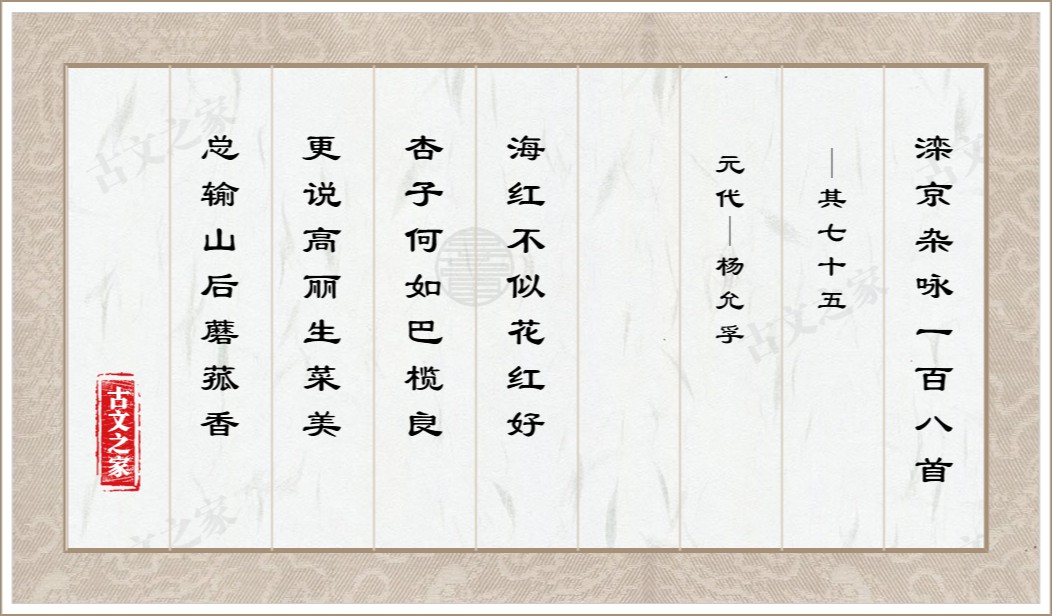 滦京杂咏一百八首
—其七十五
元代—杨允孚
海红不似花红好
杏子何如巴榄良
更说高丽生菜美
总输山后蘑菰香
古文之家
古文之家
古文之家
古文之家